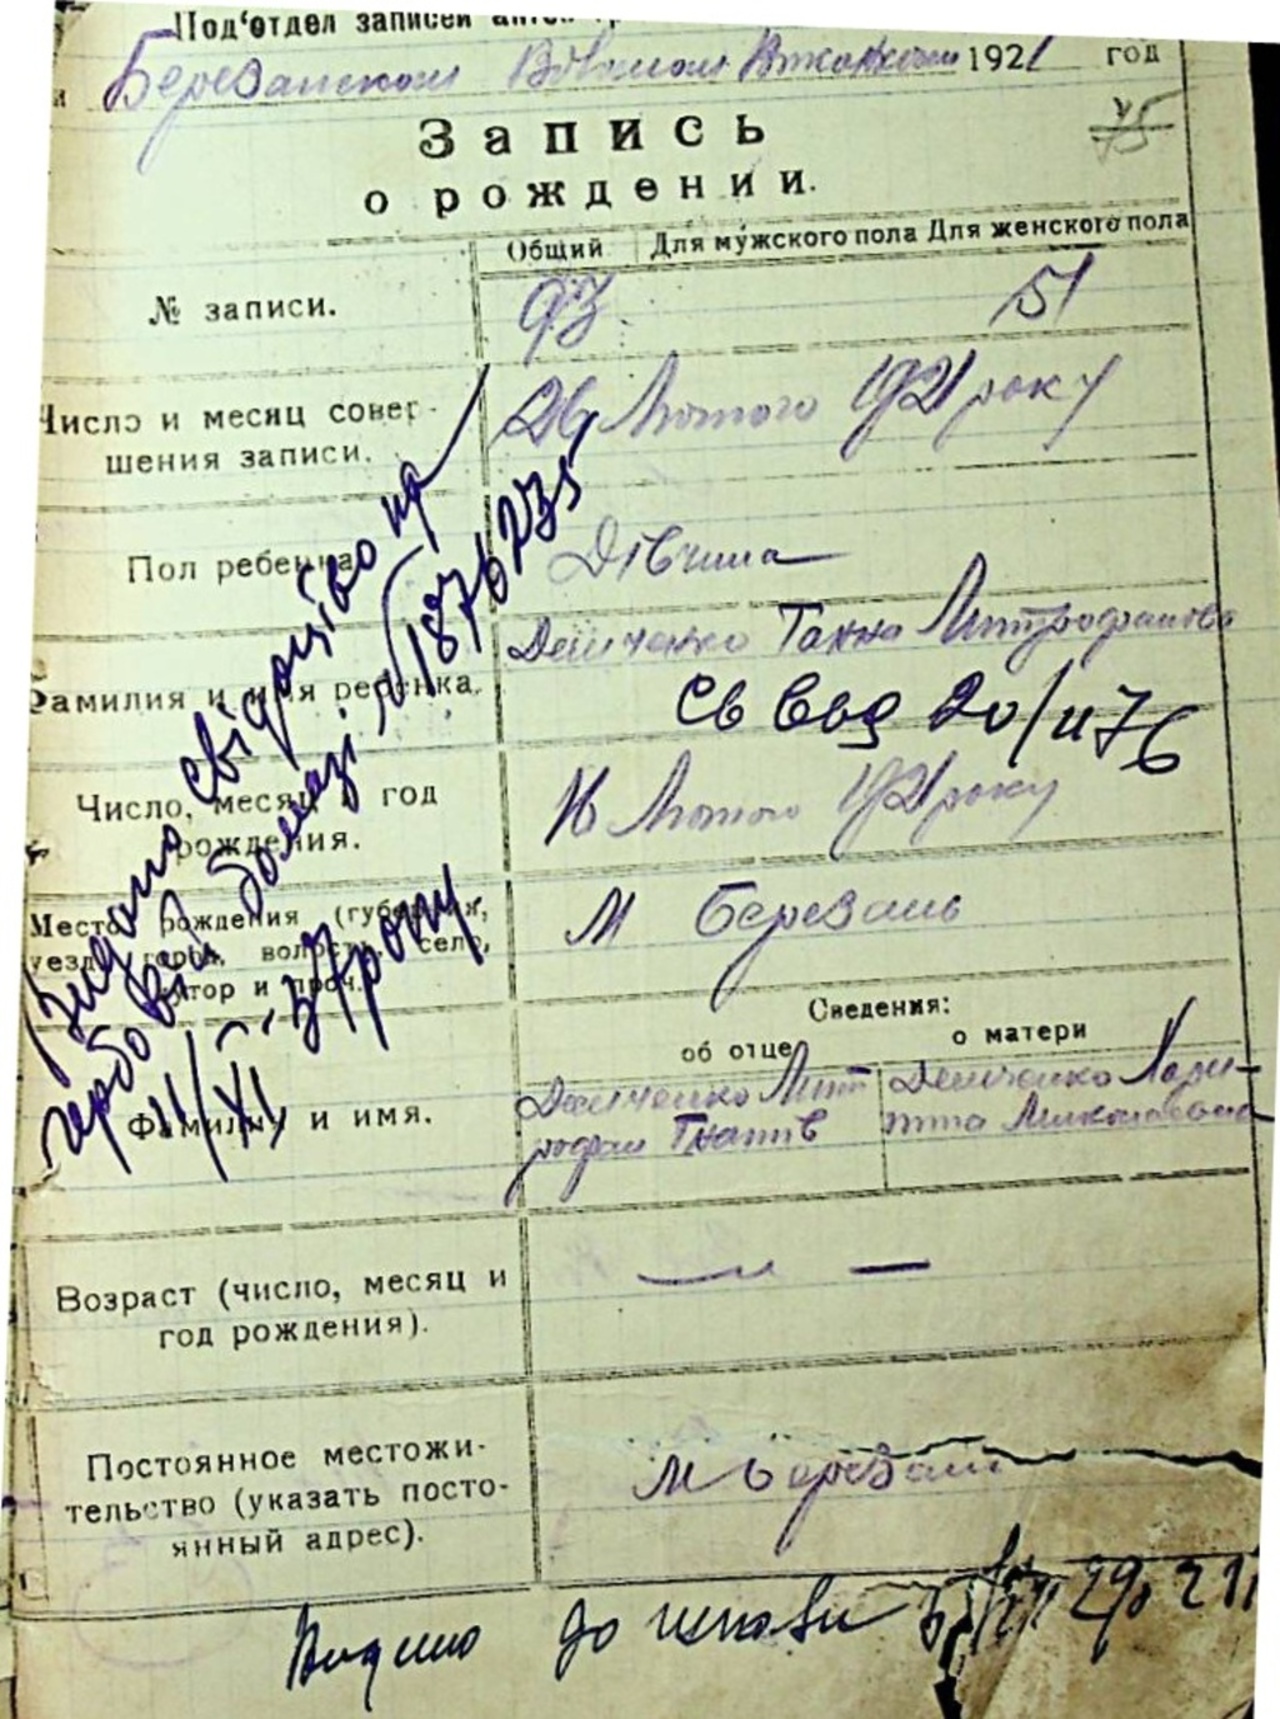 Под'отдел записей
и Березанском 1921 год
75
Запись
о рождении.
Общий Для мужского пола Для женского пола
№ записи. 93 51
Число и месяц совер- 26 Лютого 1921 року
шения записи.
Пол ребенка Дівчина
Фамилия и имя ребенка. Демченко Ганна Митрофанова
Св выд 20/II 76
Число, месяц и год 16 Лютого 1921 року
рождения.
Место рождения (губерния, М Березань
уезд, город, волость, село,
хутор и проч.
Сведения:
об отце о матери
Фамилия и имя. Демченко Мит
рофан Гнатів
Демченко Хари-
тина Миколаєвна
Возраст (число, месяц и — —
год рождения).
Постоянное местожи- М Березань
тельство (указать посто-
янный адрес).
Видано свідоцтво на
гербовій бомазі № 1876235
11/XI-37 року
Видано до